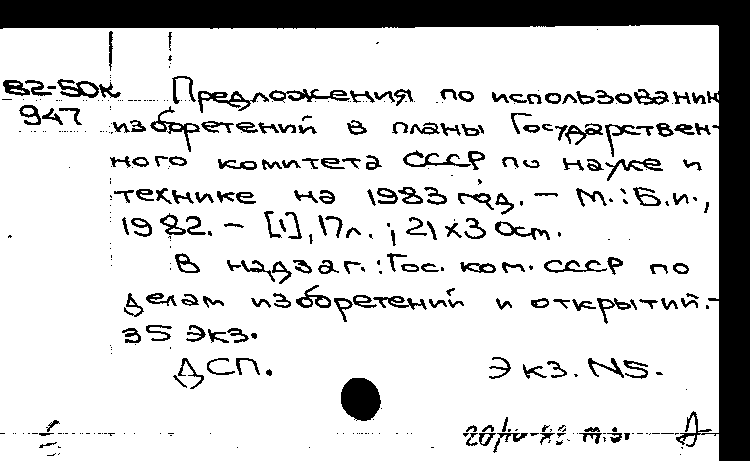 В2-50к Предложения по использованию
947 изобретений в планы Государствен-
ного комитета СССР по науке и
технике на 1983 год. – М.: Б.и.,
1982. – [1], 17л. ; 21х30cm.
В надзаг.: Гос. ком. СССР по
делам изобретений и открытий.-
35 экз.
ДСП. Экз. N5.